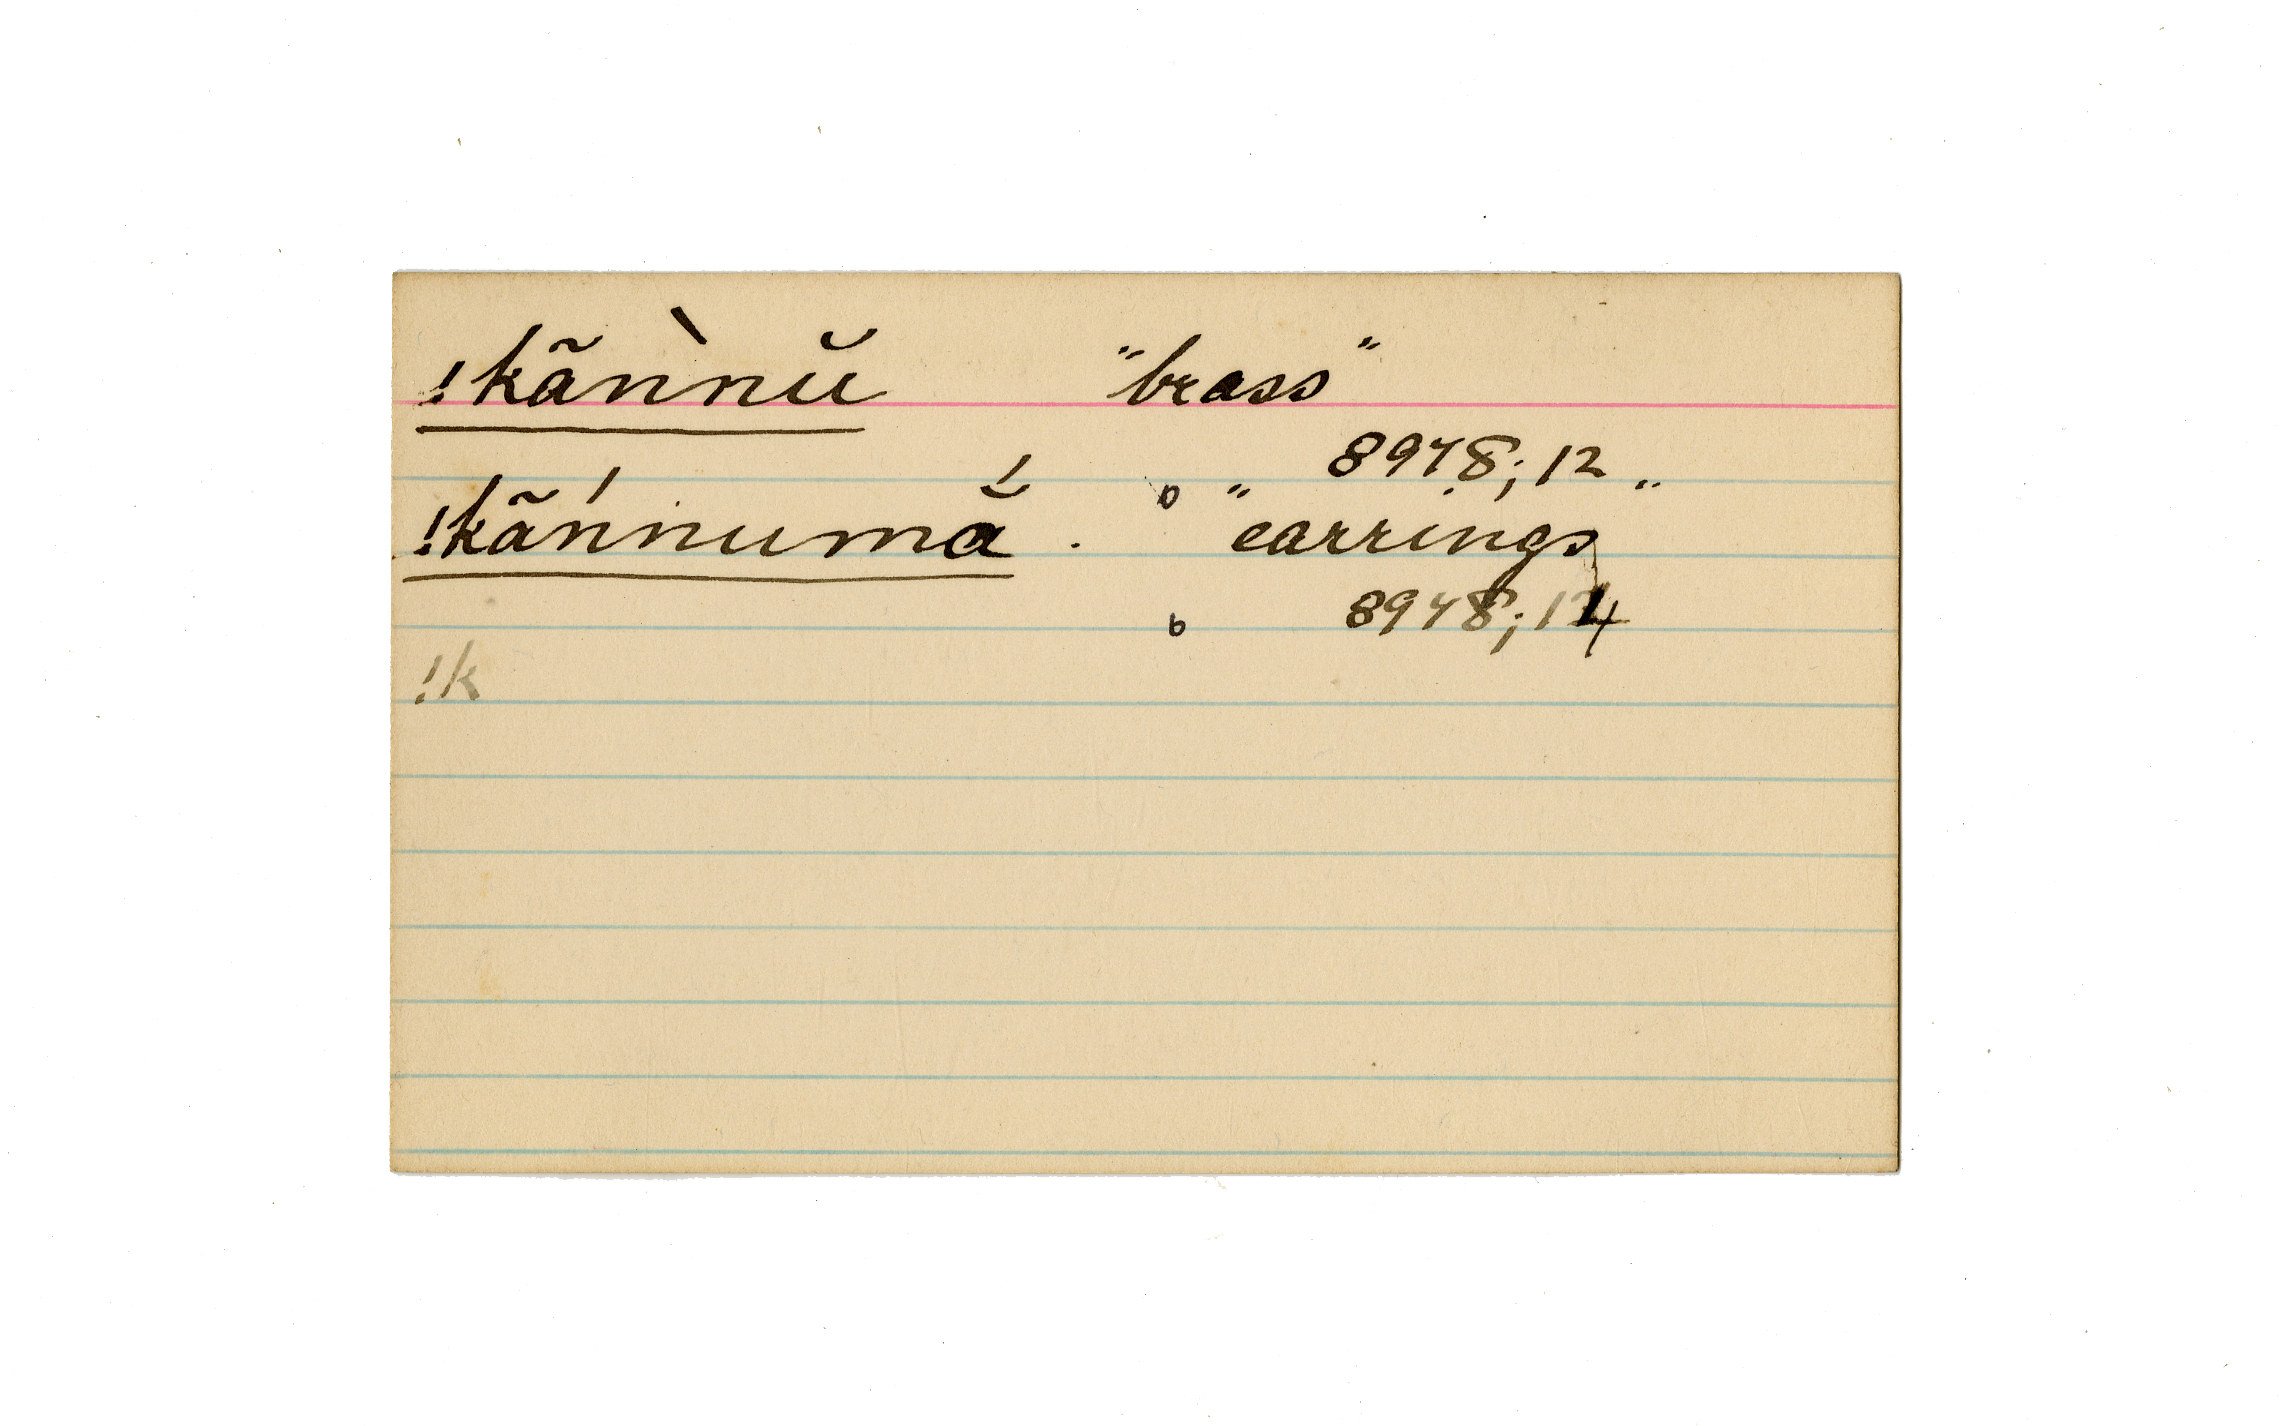 !kãǹnŭ "brass"
8978;12
!kãńnumā̆́ . "earrings"
8978;14
!k